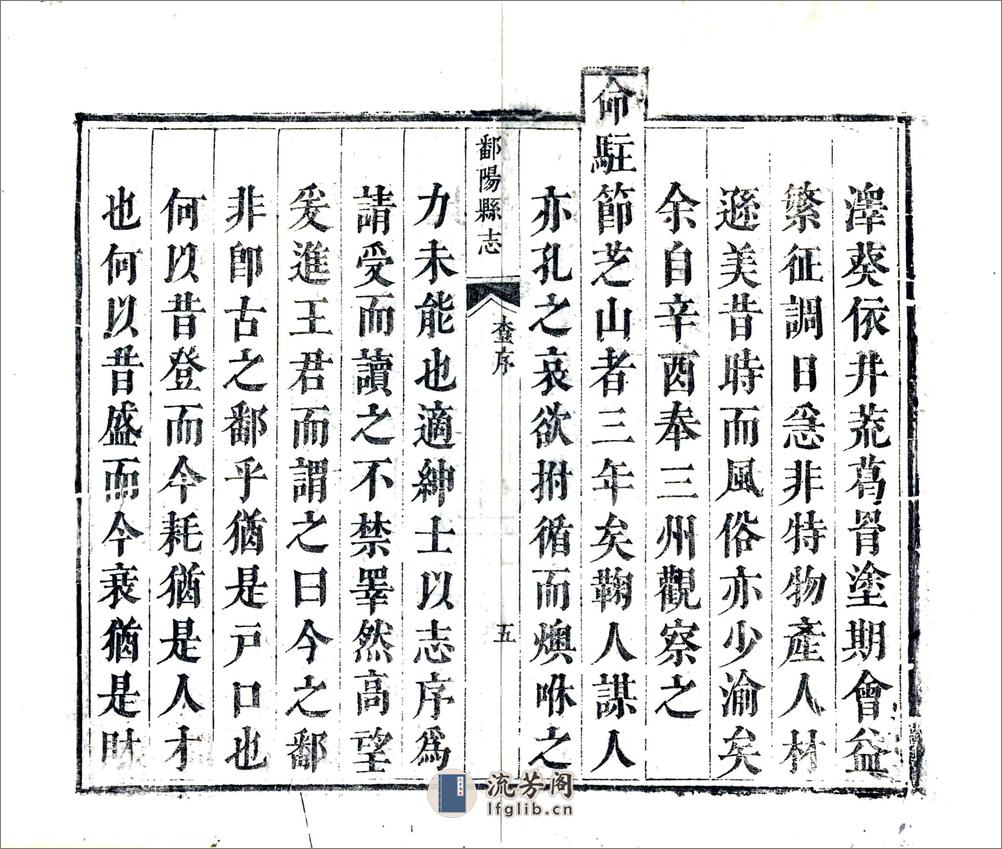 澤葵依井荒葛罥塗期會益
繁征調日急非特物產人材
遜美昔時而風俗亦少渝矣
余自辛酉奉三州觀察之
命駐節芝山者三年矣鞠人謀人
亦孔之哀欲拊循而燠咻之
鄱陽縣志
查序
五
力未能也適紳士以志序為
請受而讀之不禁睪然高望
爰進王君而謂之曰今之鄱
非卽古之鄱乎猶是戶口也
何以昔登而今耗猶是人才
也何以昔盛而今衰猶是財
流芳阁
lfglib.cn